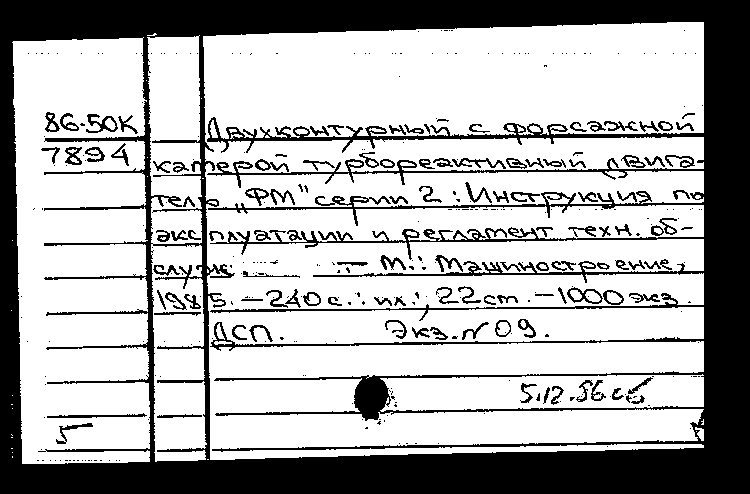 86-50К
7894
Двухконтурный с форсажной
камерой турбореактивный двига-
тель „ФМ" серии 2 : Инструкция по
эксплуатации и регламент техн. об-
служ. — М.: Машиностроение,
1985. — 240 с.: ил.; 22 см. — 1000 экз.
ДСП. Экз. № 09.
5.12.86 сб
5